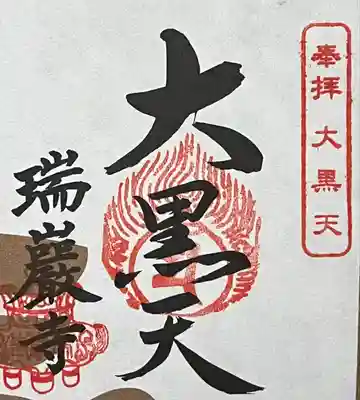 奉拝 大黒天
大黒天
瑞巖寺